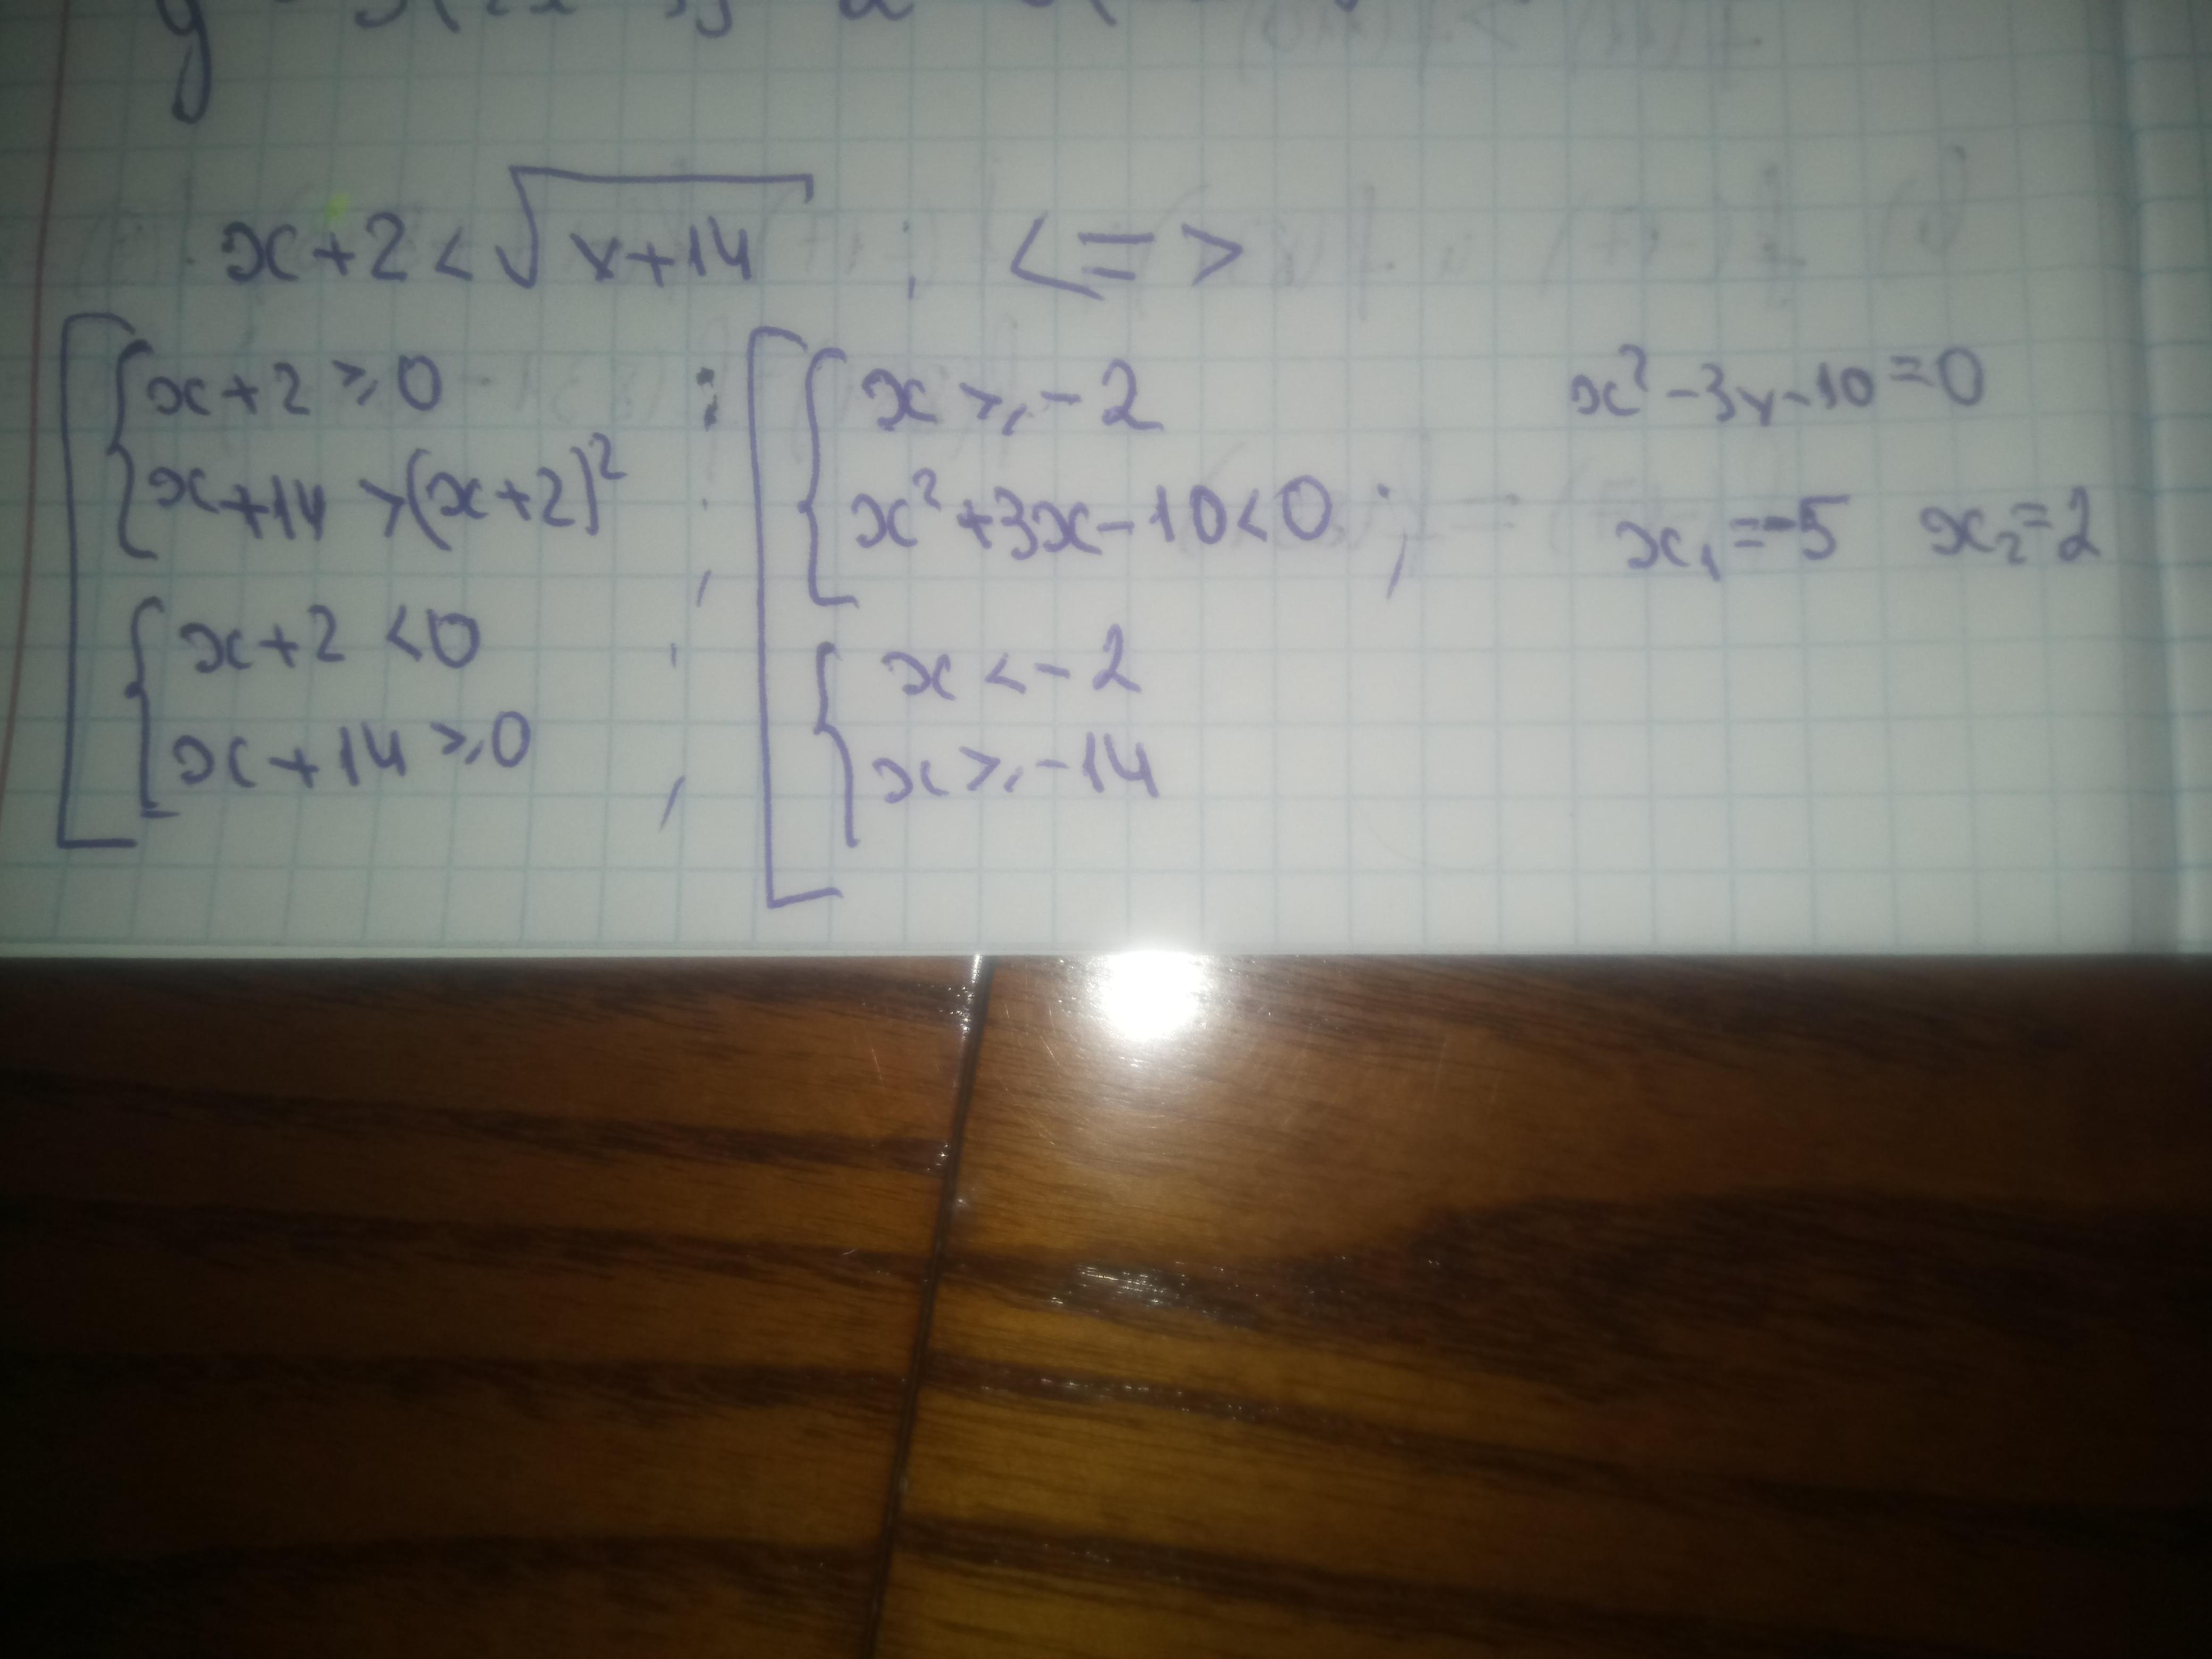 x+2<√x+14 ; <=>
x+2≥0
x+14>(x+2)²
x+2<0
x+14≥0
;
x≥-2
x²+3x-10<0 ;
x<-2
x≥-14
x²-3x-10=0
x₁=-5 x₂=2